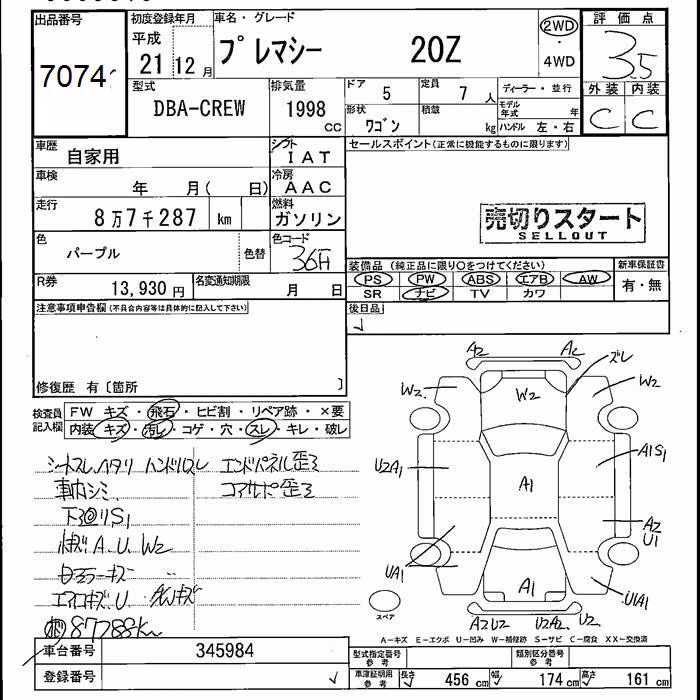 出品番号 初度登録年月 車名・グレード 評価点
7074 平成 21 12月 プレマシー 20Z 2WD・4WD 3.5
型式 DBA-CREW 排気量 1998 CC ドア 5 定員 7人 ディーラー・並行 外装 内装
形状 ワゴン 積載 kg モデル年式 年 ハンドル 左・右 C C
車歴 自家用 シフト IAT セールスポイント(正常に機能するものに限ります)
車検 年 月( 日) 冷房 AAC
走行 8万7千287 km 燃料 ガソリン 売切りスタート
SELLOUT
色 パープル 色替 色コード 36A
装備品 (純正品に限り○をつけてください) 新車保証書
R券 13,930円 名変通知期限 月 日 PS PW ABS エアB AW 有・無
SR ナビ TV カワ
注意事項申告欄(不具合内容等は具体的に記入して下さい) 後日品
修復歴 有〔箇所 〕
検査員記入欄 FW キズ・飛石・ヒビ割・リペア跡・×要
内装 キズ・汚レ・コゲ・穴・スレ・キレ・破レ
シートスレ、ヘタリ ハンドルスレ エンドパネル歪ミ
車内シミ コアサポ歪ミ
下廻りS1
A.U.W2
エアロキズ.U
87288km
A2 A2 ズレ
W2 W2 W2
U2A1 A1 A1S1
A2 U1
UA1 A1 U1A1
A2U2 U2A2 U2
スペア
A-キズ E-エクボ U-凹み W-補修跡 S-サビ C-腐食 XX-交換済
車台番号 345984 型式指定番号 参考 類別区分番号 参考
登録番号 車庫証明用 参考 長さ 456cm 幅 174cm 高さ 161cm